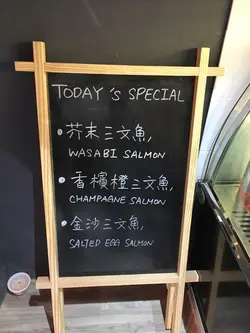 TODAY's SPECIAL
• 芥末三文魚,
WASABI SALMON
• 香檳橙三文魚,
CHAMPAGNE SALMON
• 金沙三文魚,
SALTED EGG SALMON